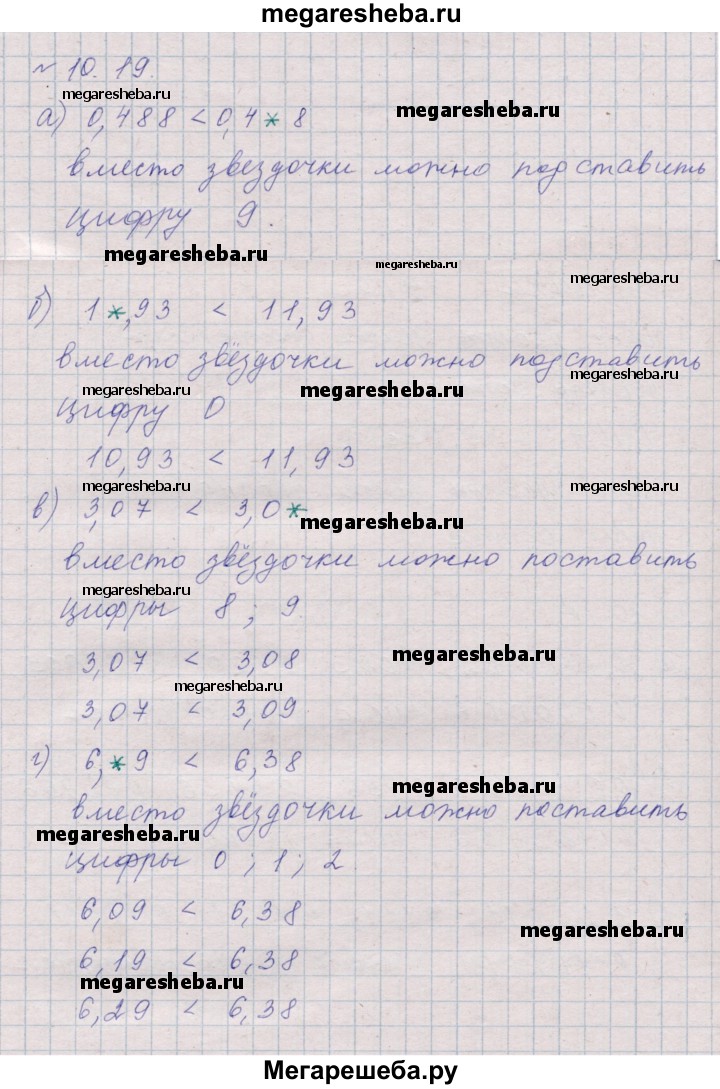 megaresheba.ru
№ 10.19.
megaresheba.ru
а) 0,488 < 0,4* 8
megaresheba.ru
вместо звездочки можно подставить
цифру 9.
megaresheba.ru
megaresheba.ru
megaresheba.ru
б) 1*,93 < 11,93
вместо звёздочки можно подставить
megaresheba.ru
megaresheba.ru
megaresheba.ru
цифру 0
10,93 < 11,93
megaresheba.ru
megaresheba.ru
в) 3,07 < 3,0*
megaresheba.ru
вместо звёздочки можно поставить
megaresheba.ru
цифры 8; 9.
3,07 < 3,08
megaresheba.ru
megaresheba.ru
3,07 < 3,09.
г) 6,*9 < 6,38
megaresheba.ru
вместо звёздочки можно поставить
megaresheba.ru
цифры 0; 1; 2.
6,09 < 6,38
megaresheba.ru
6,19 < 6,38
megaresheba.ru
6,29 < 6,38
Мегарешеба.ру